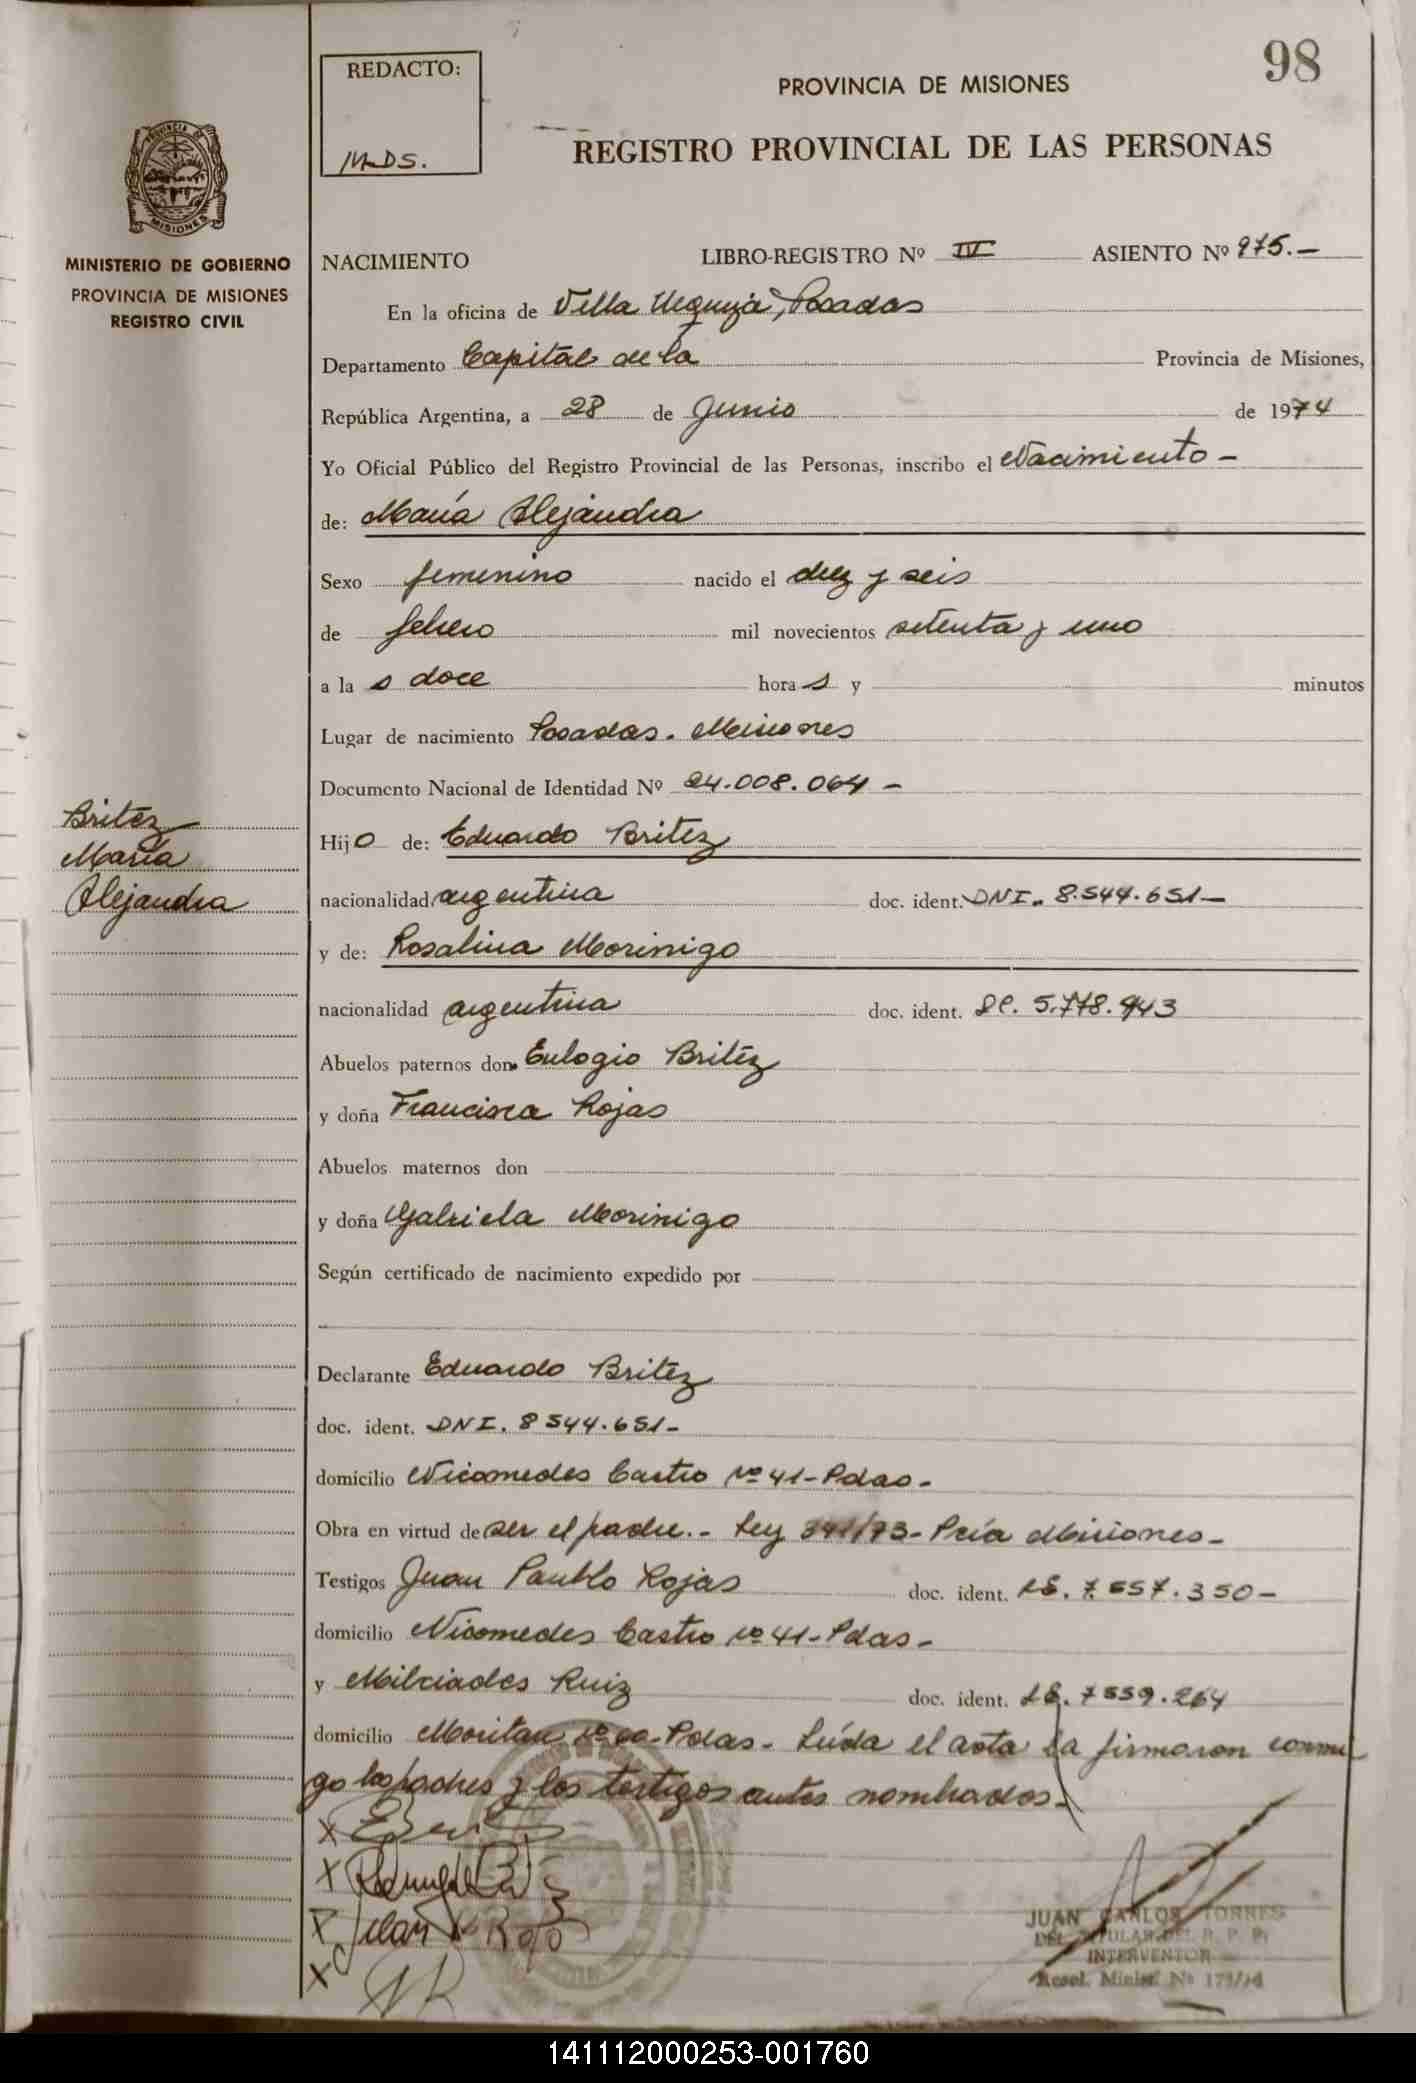 98
REDACTO:
M.DS.
PROVINCIA DE MISIONES
REGISTRO PROVINCIAL DE LAS PERSONAS
PROVINCIA DE
MISIONES
MINISTERIO DE GOBIERNO
PROVINCIA DE MISIONES
REGISTRO CIVIL
NACIMIENTO LIBRO-REGISTRO Nº IV ASIENTO Nº 975.-
En la oficina de Villa Urquiza, Posadas
Departamento Capital de la Provincia de Misiones,
República Argentina, a 28 de Junio de 1974
Yo Oficial Público del Registro Provincial de las Personas, inscribo el Nacimiento -
de: María Alejandra
Sexo femenino nacido el diez y seis
de febrero mil novecientos setenta y uno
a la s doce hora s y minutos
Lugar de nacimiento Posadas. Misiones
Documento Nacional de Identidad Nº 24.008.064 -
Britez
María
Alejandra
Hijo de: Eduardo Britez
nacionalidad argentina doc. ident. DNI. 8.544.651-
y de: Rosalina Morinigo
nacionalidad argentina doc. ident. 5.778.943
Abuelos paternos don Eulogio Britez
y doña Francisca Rojas
Abuelos maternos don
y doña Gabriela Morinigo
Según certificado de nacimiento expedido por
Declarante Eduardo Britez
doc. ident. DNI. 8544.651-
domicilio Nicomedes Castro Nº 41-Pdas-
Obra en virtud de ser el padre.- Ley /73- Pcia Misiones-
Testigos Juan Paublo Rojas doc. ident. LE. 7.557.350-
domicilio Nicomedes Castro Nº 41-Pdas-
y Milciades Ruiz doc. ident. LE. 7559.264
domicilio Moritan Nº 60-Pdas- Leída el acta la firmaron conmi
go los padres y los testigos antes nombrados-
X
X
X
X
JUAN CARLOS TORRES
DEL. TITULAR DEL R. P. P.
INTERVENTOR
Resol. Minist. Nº 175/74
141112000253-001760